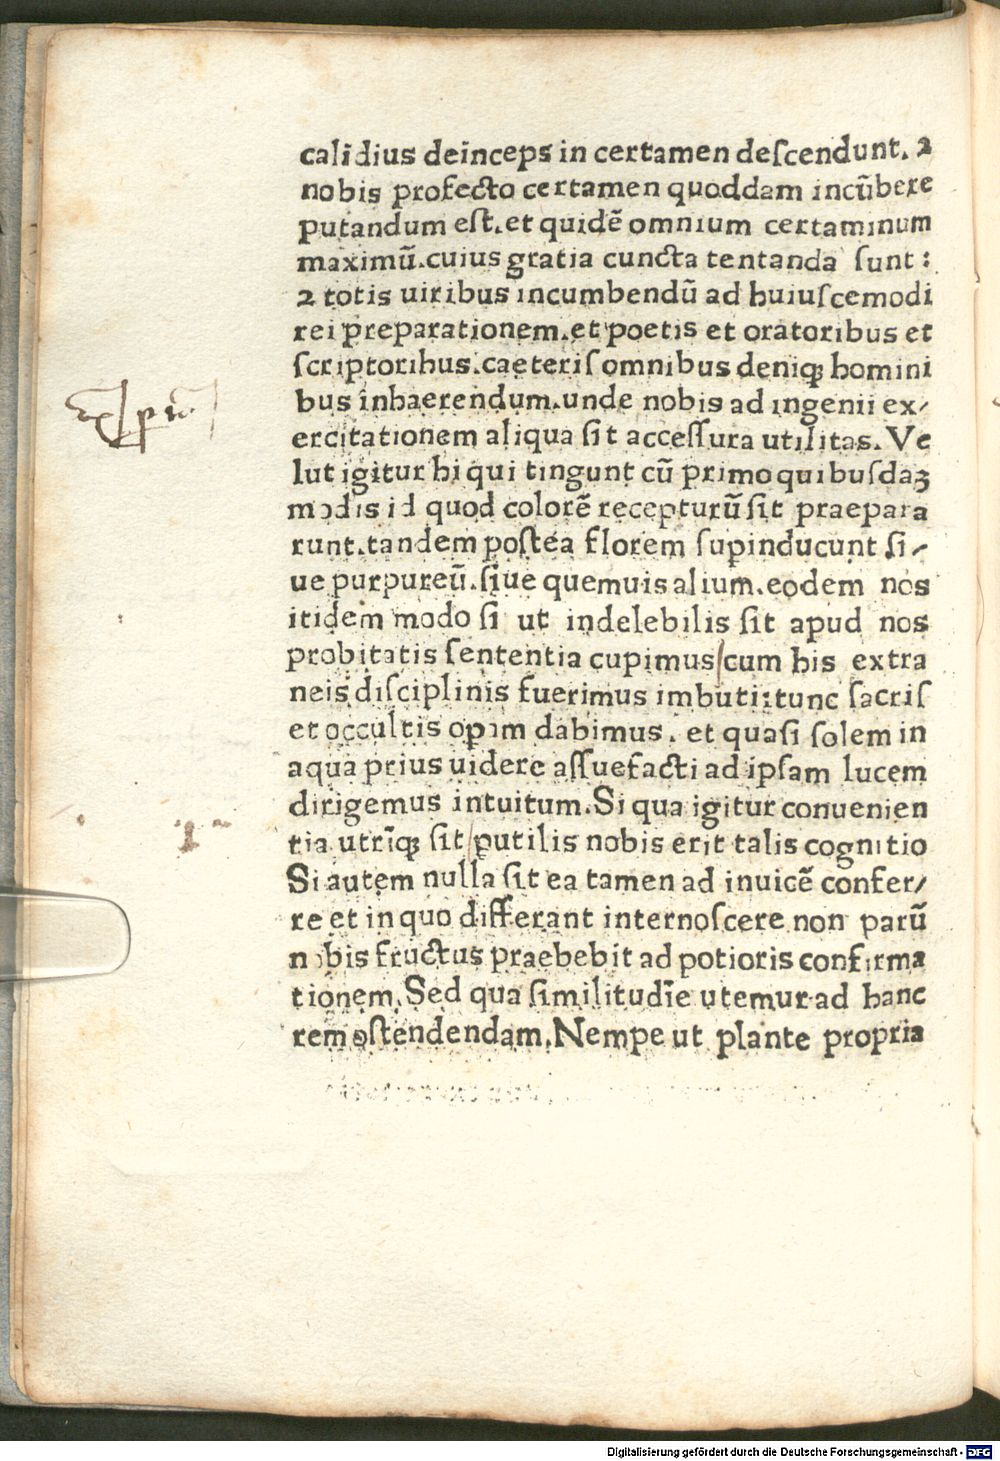 calīdius deīnceps in certamen deſcendunt. ⁊
nobis profecto certamen quoddam incūbere
putandum eſt. et quidē omnium certaminum
maximū. cuius gratia cuncta tentanda ſunt:
⁊ totis uiribus incumbendū ad huiuſcemodi
rei preparationem. et poetis et oratoribus et
ſcriptoribus. caeteriſ omnibus deniqꝫ homini
bus inhaerendum. unde nobis ad ingenii ex/
ercitationem aliqua ſit acceſſura utilitas. Ve
lut igitur hi qui tingunt cū primo quibuſdaꝫ
modis id quod colorē recepturū ſit praepara
runt. tandem poſtea florem ſupinducunt ſi/
ue purpureū. ſiue quemuis alium. eodem nos
itidem modo ſi ut indelebilis ſit apud nos
probitatis ſententia cupimus/cum his extra
neis diſciplinis fuerimus imbuti: tunc ſacriſ
et occultis opam dabimus. et quaſi ſolem in
aqua prius uidere aſſuefacti ad ipſam lucem
dirigemus intuitum. Si qua igitur conuenien
tia utrīqꝫ ſit/putilis nobis erit talis cognitio
Si autem nulla ſit ea tamen ad inuicē confer/
re et in quo differant internoſcere non parū
nobis fructus praebebit ad potioris confirma
tionem. Sed qua ſimilitudīe utemur ad hanc
rem oſtendendam. Nempe ut plante propria
Digitalisierung gefördert durch die Deutsche Forschungsgemeinschaft - DFG